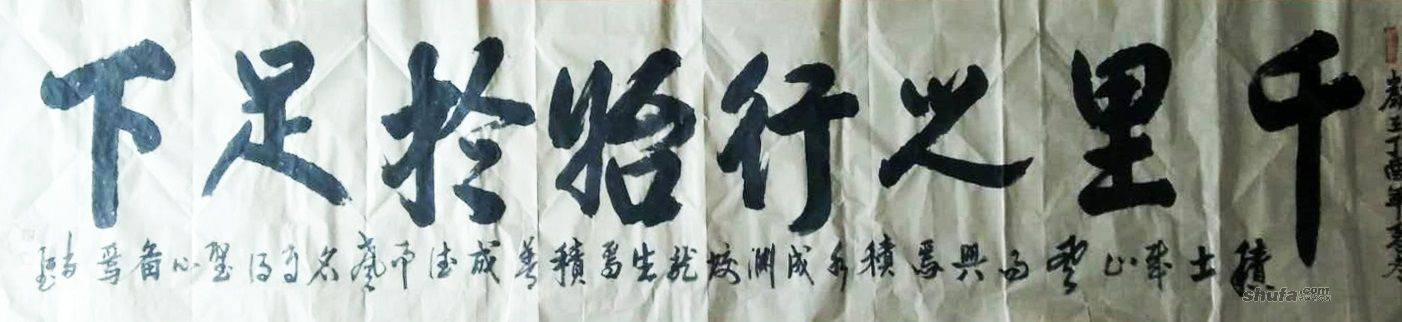 歲在丁酉年
千里之行始於足下
積土成山風雨興焉積水成淵蛟龍生焉積善成德而自得聖心備焉
shufa.com